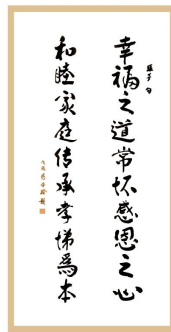 幸福之道常怀感恩之心
和睦家庭传承孝悌為本